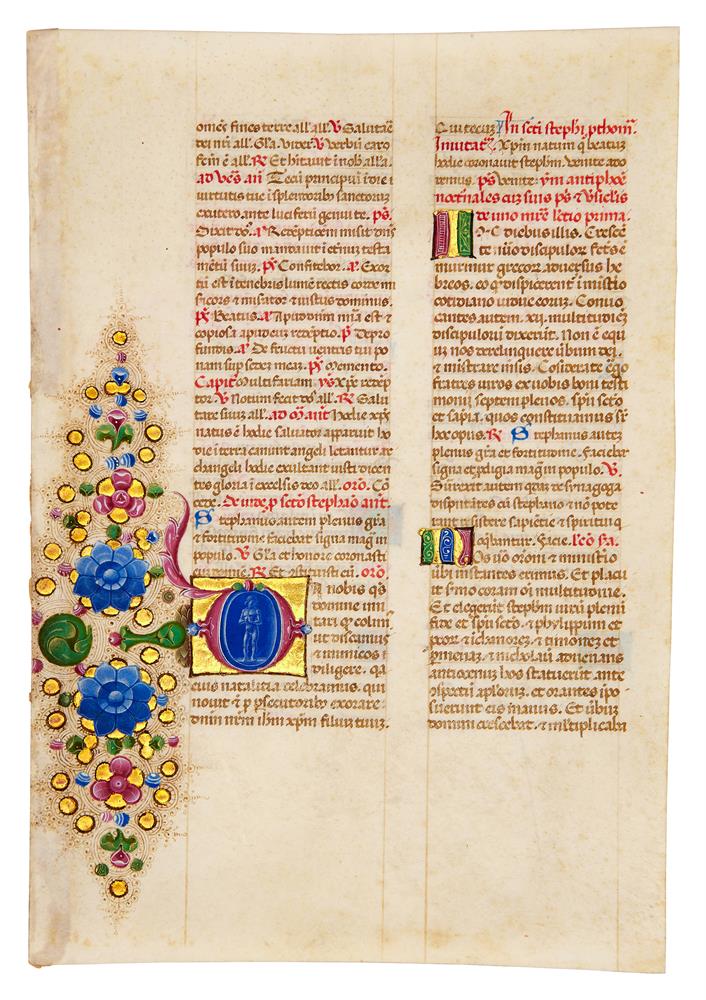 omēs fines terre all'all'. ℣ Salutarē
dei nr̄i all'. Gl̄a. Viderūt ℣ Verbū caro
fcm̄ ē all'. ℟ Et hītauit ī nob̄ all'a.
ad ves̄. an̄ Tecū principiū ī die
uirtutis tue ī splendorib' sanctorū
ex utero ante luciferū genui te. ps̄.
Dixit dn̄s. a Redeptionem misit dn̄s
populo suo mandauit ī etnū testa
mētū suū. ps̄ Confitebor. a. Exor
tū est ī tenebris lumē rectis corde mi
sicors & misator & iustus dominus.
ps̄ Beatus. a Apud dnm mīa est &
copiosa apud eum redeptio. p̄ De pro
fundis. a De fructu uentris tui po
nam sup sedez meaz. ps̄ Memento.
Capit. Multifariam. ys̄ Xp̄e redēp
tor. ℣ Notum fecit dn̄s all'. ℟ Salu
tare suū all'. ad m̄ ant̄ Hodie xp̄s
natus ē hodie saluator apparuit ho
die ī terra canunt angeli letantur ar
changeli hodie exultant iusti dicen
tes gloria ī excelsis deo all'. oro. Cō
cede. De inde p sctō stephāo ant.
Stephanus autem plenus gr̄a
& fortitudine faciebat signa mag in
populo. ℣ Gl̄a et honore coronasti
eum domine. ℟ Et ostituisti eū. oro.
Da nobis qs̄
domine imi
tari q̄ colim'
ut discamus
& inimicos
diligere. qa
eius natalitia celebramus. qui
nouit & p psecutorib' exorare
dnm nrm ihm xpm filium tuum.
Qui tecum In scti stephi pthom.
Inuitat. Xpm natum q beatum
hodie coronauit stephm. Venite ado
remus. ps̄ Venite. ym̄ antiphoē
nocturnales cum suis ps̄ & ℣siclis
de uno mre. lectio prima.
IN diebus illis. Cresce
te nūo discipulor fcs ē
murmur grecor aduersus he
breos. eo q dispicerent' ī mistio
cotidiano uidue eorum. Conuo
cantes autem. xii. multitudinez
discipulorū dixerūt. Non ē equ
um nos derelinquere ūbum dei.
& mistrare mensis. Cosiderate ego
fratres uiros ex uobis boni testi
monii septem plenos. spū scto
et sapia. quos constituamus sr
hoc opus. ℟ Stephanus autez
plenus gr̄a et fortitudine. Faciebat
signa et pdigia mag in populo. ℣.
Surrexerūt autem qdaz de synagoga
disputātes cū stephano & nō pote
rant resistere sapiētie & spiritui q
loqbantur. Facie. lec̄o sa.
NOs ūo oroni & ministio
ūbi instantes erimus. Et placu
it smo coram oi multitudine.
Et elegerūt stephm uirū plenū
fide et spū scto. & phylyppum et
pcor & nichanorez & timonez et
pmenaz. & nicholaū aduenam
antiocenuz hos statuerūt ante
ospectū aplorum. et orantes ipo
suerunt eis manus. Et ūbum
domini crescebat. & multiplicaba